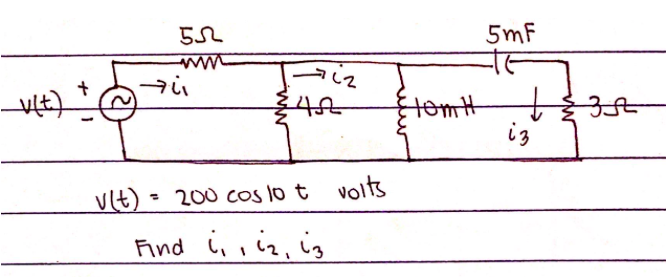 5Ω 5mF
+ → i₁ → i₂
v(t) ~ 4Ω 10mH ↓ 3Ω
- i₃
v(t) = 200 cos 10 t volts
Find i₁, i₂, i₃